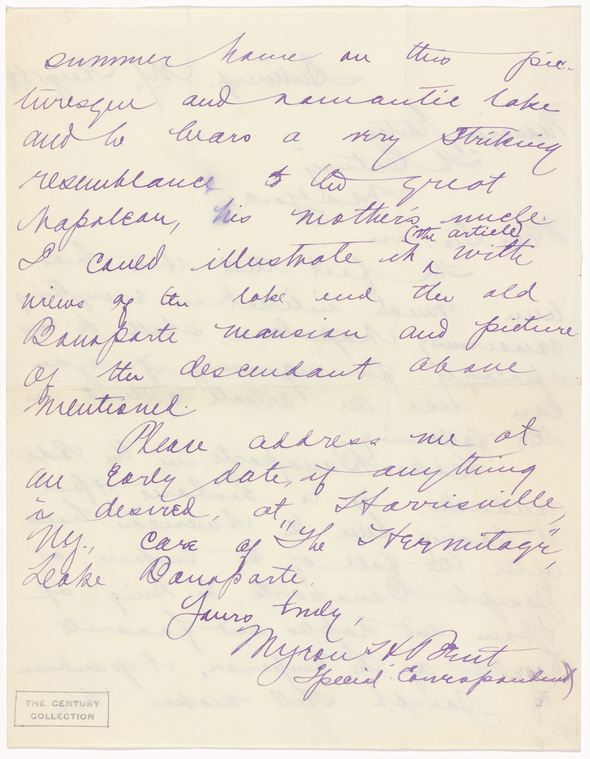 summer home on this pic-
turesque and romantic lake
and he bears a very striking
resemblance to the great
Napolean, his mother's uncle.
(the article)
I could illustrate it with
views of the lake and the old
Bonaparte mansion and picture
of the descendant above
mentioned.
Please address me at
an early date, if anything
is desired, at Harrisville,
N.Y., care of "The Hermitage",
Lake Bonaparte.
Yours truly,
Myron H
Special Correspondent)
THE CENTURY
COLLECTION